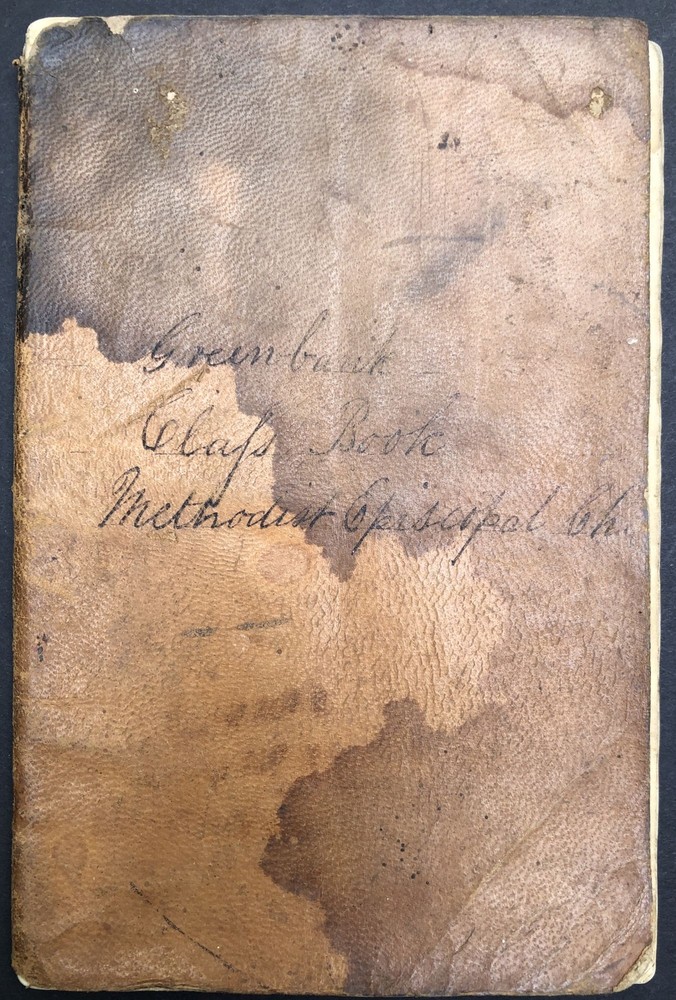 Greenbank
Claſs Book
Methodist Episcopal Ch.